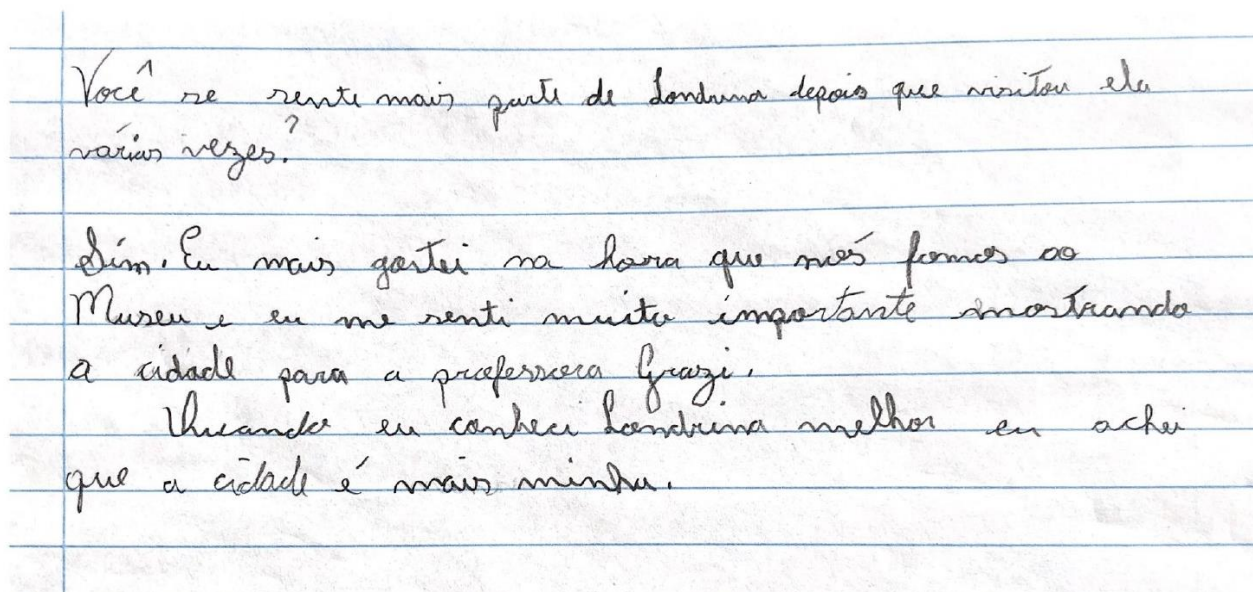 Você se sente mais parte de Londrina depois que visitou ela
várias vezes?
Sim. Eu mais gostei na hora que nós fomos ao
Museu e eu me senti muito importante mostrando
a cidade para a professora Grazi.
Quando eu conheci Londrina melhor eu achei
que a cidade é mais minha.